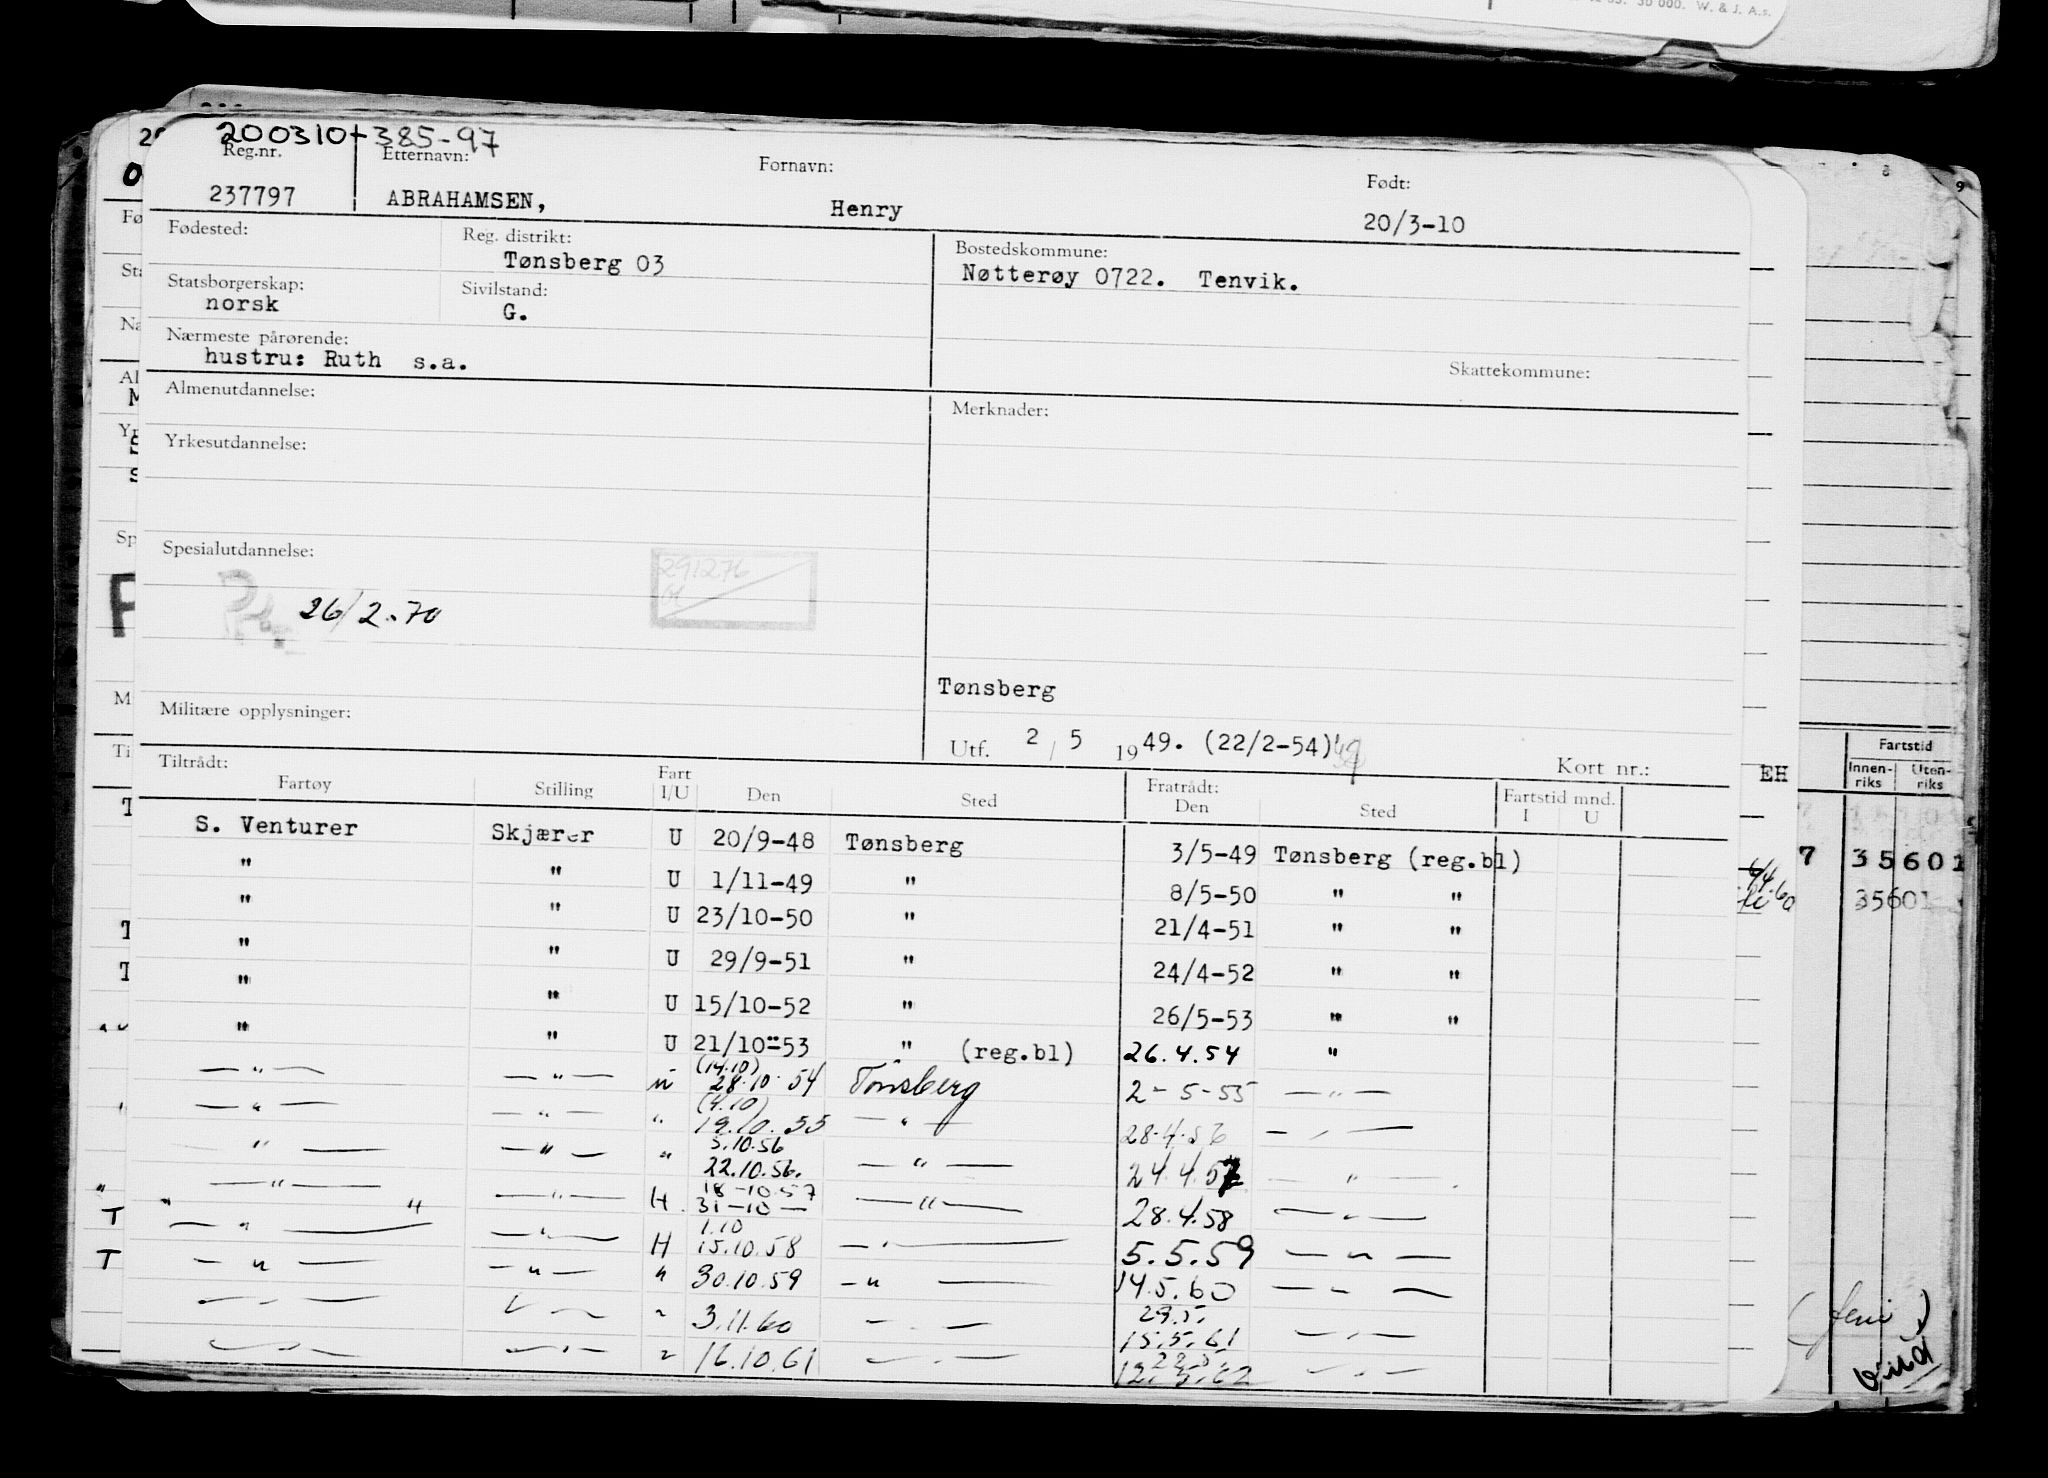 30 000. W. & J. A.s.
200310+385-97
Reg.nr. Etternavn: Fornavn: Født:
237797 ABRAHAMSEN, Henry 20/3-10
Fødested: Reg. distrikt: Bostedskommune:
Tønsberg 03 Nøtterøy 0722. Tenvik.
Statsborgerskap: Sivilstand:
norsk G.
Nærmeste pårørende: Skattekommune:
hustru: Ruth s.a.
Almenutdannelse: Merknader:
Yrkesutdannelse:
Spesialutdannelse:
291276
26/2.70
Tønsberg
Militære opplysninger:
Utf. 2 / 5 1949. (22/2-54)
Kort nr.: EH
Tiltrådt: Fratrådt:
Fartøy Stilling Fart I/U Den Sted Den Sted Fartstid mnd. I U
S. Venturer Skjærer U 20/9-48 Tønsberg 3/5-49 Tønsberg (reg.bl)
" " U 1/11-49 " 8/5-50 " "
" " U 23/10-50 " 21/4-51 " "
" " U 29/9-51 " 24/4-52 " "
" " U 15/10-52 " 26/5-53 " "
" " U 21/10-53 " (reg.bl) 26.4.54 "
(14.10)
— " — — " — u 28.10.54 Tønsberg 2-5-55 — " —
(4.10)
— " — — " — " 19.10.55 — " — 28.4.56 — " —
3.10.56
" — — " — " 22.10.56. — " — 24.4.57 — " —
18-10.57
— " — — " — H 31-10 — — " — 28.4.58 — " —
1.10
— " — — " — H 15.10.58 — " — 5.5.59 — " —
— " — — " — " 30.10.59 — " — 14.5.60 — " —
29.5.
— " — — " — " 3.11.60 — " — 15.5.61 — " —
— " — — " — " 16.10.61 — " — — " —
Fartstid
Innen-riks Uten-riks
7 35601
35601